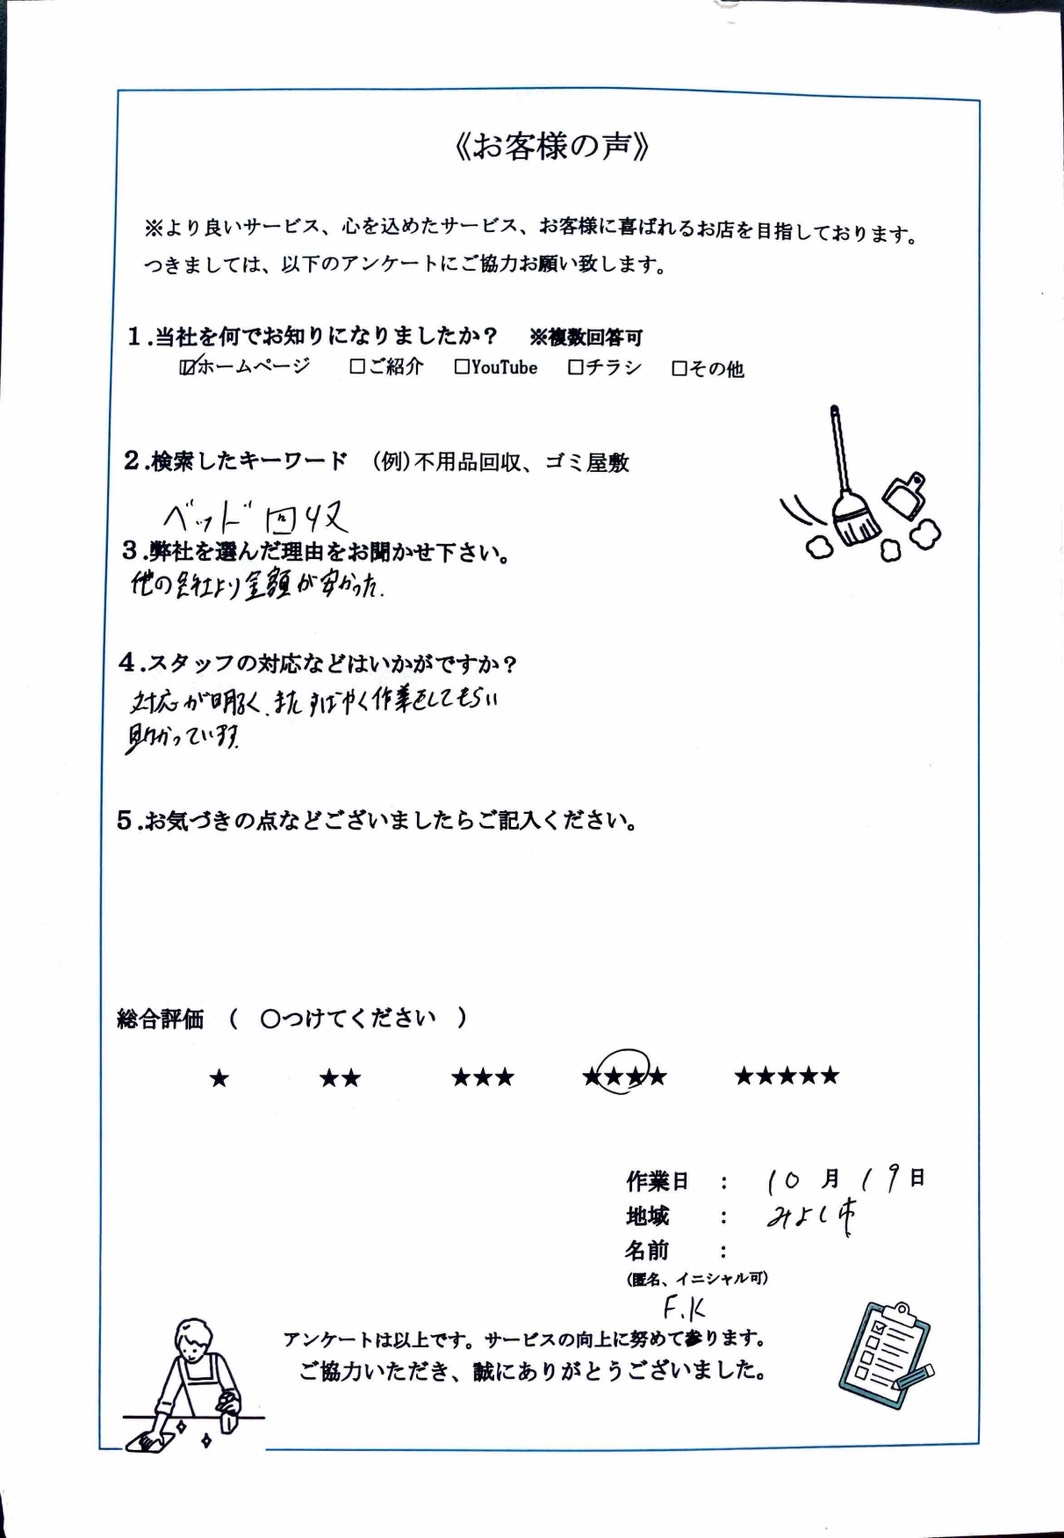 《お客様の声》
※より良いサービス、心を込めたサービス、お客様に喜ばれるお店を目指しております。
つきましては、以下のアンケートにご協力お願い致します。
1.当社を何でお知りになりましたか？ ※複数回答可
☑ホームページ □ご紹介 □YouTube □チラシ □その他
2.検索したキーワード （例）不用品回収、ゴミ屋敷
ベッド回収
3.弊社を選んだ理由をお聞かせ下さい。
他の会社より金額が安かった.
4.スタッフの対応などはいかがですか？
対応が明るく、また すばやく作業をしてもらい
助かっています.
5.お気づきの点などございましたらご記入ください。
総合評価 （ ○つけてください ）
★ ★★ ★★★ ★★★★ ★★★★★
作業日 ： 10月19日
地域 ： みよし市
名前 ：
（匿名、イニシャル可）
F.K
アンケートは以上です。サービスの向上に努めて参ります。
ご協力いただき、誠にありがとうございました。